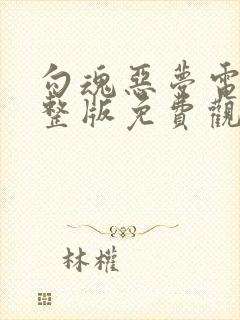 勾魂惡夢電
整版免費觀
林權